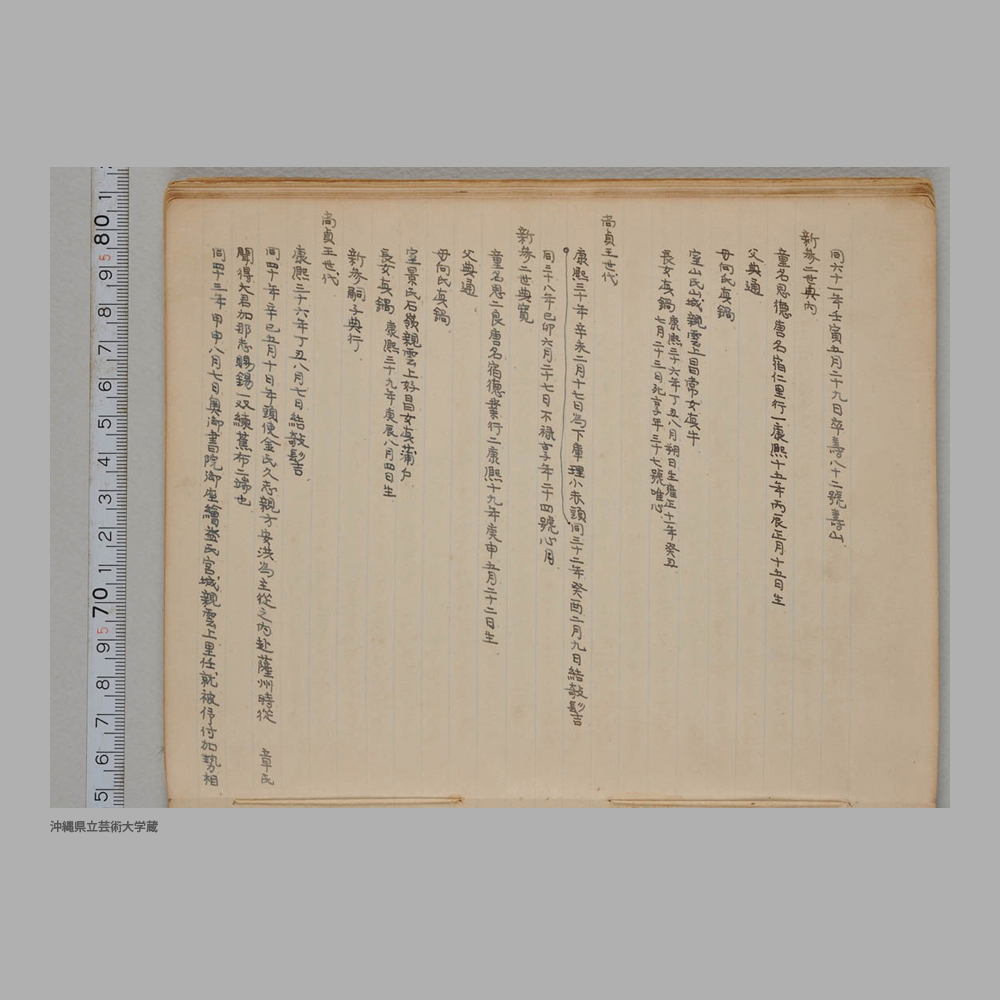 同六十一年壬寅五月二十九日卒壽八十二號壽山
新参二世典内
童名思德唐名宿仁里行一康熙十五年丙辰正月十五日生
父典通
母向氏真鍋
室山氏山城親雲上昌常女真牛
康熙三十六年丁丑八月朔日生雍正十一年癸丑
長女真鍋七月二十三日死享年三十七號唯心
尚貞王世代
康熙三十年辛未二月十七日為下庫理小赤頭同三十二年癸酉二月九日結敧髻
同三十八年己卯六月二十七日不禄享年二十四號心月
新参二世典寛
童名思二良唐名宿德業行二康熙十九年庚申五月二十二日生
父典通
母向氏真鍋
室景氏石嶺親雲上好昌女真蒲戸
長女真鍋康熙三十九年庚辰八月四日生
新参嗣子典行
尚貞王世代
康熙三十六年丁丑八月七日結敧髻
同四十年辛巳五月十日年頭使金氏久志親方安洪為主從之内赴薩州時從 章氏
聞得大君加那志賜錫一双續蕉布二端也
同四十三年甲申八月七日奥御書院御座繪益氏宮城親雲上里任就被仔付加勢相
5 6 7 8 9 70 1 2 3 4 5 6 7 8 9 80 1
沖縄県立芸術大学蔵